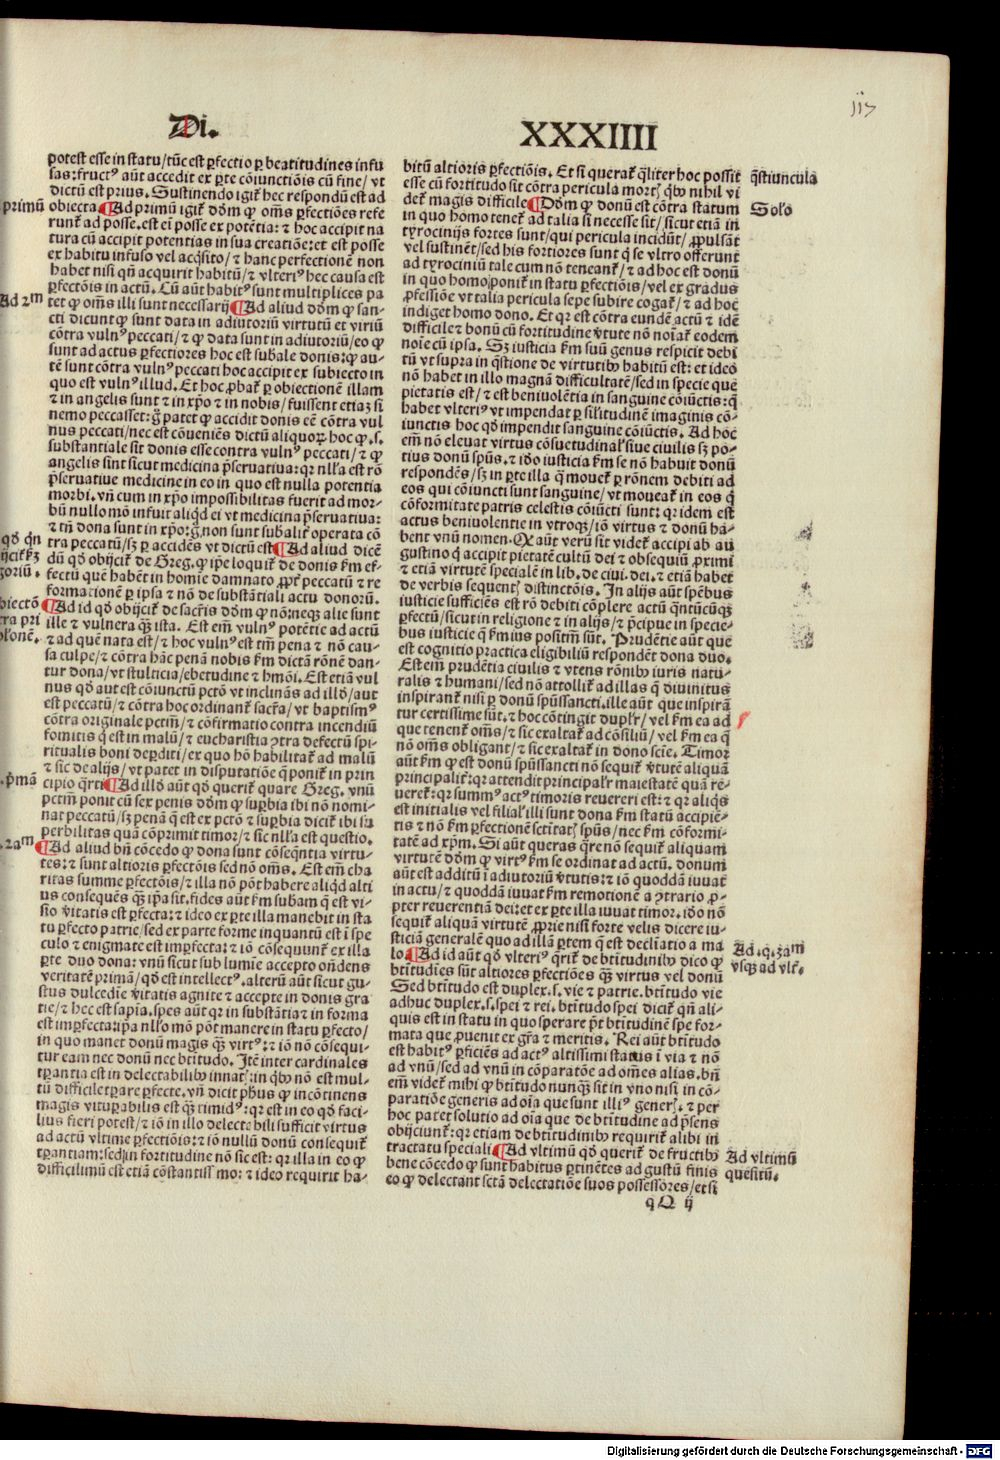 117
Di.
XXXIIII
potest esse in statu/tūc est ꝑfectio ꝑ beatitudines infu
sas: fructꝰ aūt accedit ex ꝑte cōiunctiōis cū fine/ vt
dictū est prius. Sustinendo igit̄ hec respondū est ad
primū
obiecta. ¶Ad primū igit̄ dōm ꝙ om̄s ꝑfectiões refe
runt̄ ad posse. est ei posse ex potētia: ⁊ hoc accipit na
tura cū accipit potentias in sua creatiõe: et est posse
ex habitu infuso vel acq̄sito/ ⁊ hanc perfectionē non
habet nisi qn̄ acquirit habitū/ ⁊ vlteriꝰ hec causa est
ꝑfectōis in actu. Cū aūt habitꝰ sunt multiplices pa
Ad 2m
tet ꝙ om̄s illi sunt necessarij ¶Ad aliud dōm ꝙ san-
cti dicunt ꝙ sunt data in adiutoriū virtutū et viriū
cōtra vulnꝰ peccati/ ⁊ ꝙ data sunt in adiutoriū/eo ꝙ
sunt ad actus ꝑfectiores hoc est subāle donis: ꝙ au-
tē sunt cōtra vulnꝰ peccati hoc accipit ex subiecto in
quo est vulnꝰ illud. Et hoc ꝓbat̄ ꝑ obiectionē illam
⁊ in angelis sunt ⁊ in xp̄o ⁊ in nobis/ fuissent etiaꝫ si
nemo peccasset: g̊ patet ꝙ accidit donis eē cōtra vul
nus peccati/nec est cōueniēs dictū aliquoꝝ hoc ꝙ .s.
substantiale sit donis esse contra vulnꝰ peccati/ ⁊ ꝙ
angelis sint sicut medicina p̄seruatiua: qꝛ nlła est rō
p̄seruatiue medicine in eo in quo est nulla potentia
morbi. vn̄ cum in xp̄o impossibilitas fuerit ad mor-
bū nullo mō infuit aliqd ei vt medicina p̄seruatiua:
⁊ tn̄ dona sunt in xp̄o: g̊ non sunt subalit̄ operata cō
qđ qn
tra peccatū/sꝫ ꝑ accidēs vt dictū est ¶Ad aliud dicē
ijcit̄ kꝫ
dū qđ obijcit̄ de Greg. ꝙ ip̄e loquit̄ de donis ẜm ef-
goriū.
fectū quē habēt in homīe damnato ꝓpt̄ peccatū ⁊ re
formationē ꝑ ipsa ⁊ nō de substātiali actu donorū.
biectō
¶Ad id qđ obijcit̄ de sacr̄is dōm ꝙ nō: neqꝫ alie sunt
tra pri
ille ⁊ vulnera q̄ꝫ ista. Est em̄ vulnꝰ potētie ad actū
olonē.
⁊ ad quē nata est/ ⁊ hoc vulnꝰ est tm̄ pena ⁊ nō cau-
sa culpe/⁊ cōtra hāc penā nobis ẜm dictā rōnē dan-
tur dona/ vt stulticia/ebetudine ⁊ hmōi. Est etiā vul
nus qđ aut est cōiunctū pctō vt inclināns ad illđ/aut
est peccatū/ ⁊ cōtra hoc ordinant̄ sacr̄a/ vt baptismꝰ
cōtra originale pctm̄/ ⁊ cōfirmatio contra incendiū
fomitis q̄ est in malū/ ⁊ eucharistia ꝯtra defectū spi-
ritualis boni deꝑditi/ ex quo hō habilitat̄ ad malū
⁊ sic de alijs/ vt patet in disputatiõe q̄ ponit̄ in prin
.pm̄ā
cipio q̄rti ¶Ad illđ aūt qđ querit̄ quare Greg. vnū
pctm̄ ponit cū sex penis dōm ꝙ suꝑbia ibi nō nomi-
nat peccatū/sꝫ penā q̄ est ex pctō ⁊ suꝑbia dicit̄ ibi su
perbilitas quā cōprimit timor/ ⁊ sic nlła est questio.
.2am
¶Ad aliud bn̄ cōcedo ꝙ dona sunt cōseq̄ntia virtu-
tes: ⁊ sunt altioris ꝑfectōis sed nō om̄s. Est em̄ cha
ritas summe ꝑfectōis/ ⁊ illa nō pōt habere aliqd alti
us consequēs q̄ꝫ ip̄a sit. fides aūt ẜm subam q̄ est vi-
sio v̄itatis est ꝑfecta: ⁊ ideo ex ꝑte illa manebit in sta
tu ꝑfecto patrie/sed ex parte forme inquantū est ī spe
culo ⁊ enigmate est imꝑfecta: ⁊ iō cōsequunt̄ ex illa
ꝑte duo dona: vnū sicut sub lumīe accepto on̄dens
veritatē primā/ qđ est intellectꝰ. alterū aūt sicut gu-
stus dulcedīe v̄itatis agnite ⁊ accepte in donis gra
tie/ ⁊ hec est sapīa. spes aūt qꝛ in substātia ⁊ in forma
est imꝑfecta: ip̄a nłło mō pōt manere in statu ꝑfecto/
in quo manet donū magis q̄ꝫ virtꝰ: ⁊ iō nō cōsequi-
tur eam nec donū nec btītudo. Itē inter cardinales
tꝑantia est in delectabilibꝰ innatꝭ: in qbꝰ nō est mul-
tū difficile tꝑare ꝑfecte. vn̄ dicit ph̄us ꝙ incōtinens
magis vituꝑabilis est q̄ꝫ timidꝰ: qꝛ est in eo qđ faci-
lius fieri potest/ ⁊ iō in illo delectabili sufficit virtus
ad actū vltime ꝑfectiōis: ⁊ iō nullū donū consequit̄
tꝑantiam: sed in fortitudine nō sic est: qꝛ illa in eo ꝙ
difficilimū est etiā cōstantissīmo: ⁊ ideo requirit ha-
bitū altioris ꝑfectiōis. Et si querat̄ qliter hoc possit
q̄stiuncula
esse cū fortitudo sit cōtra pericula mortꝭ qbꝰ nihil vi
Solō
det̄ magis difficile ¶Dōm ꝙ donū est cōtra statum
in quo homo tenet̄ ad talia si necesse sit/ sicut etiā in
tyrocinijs fortes sunt/qui pericula incidūt/ ꝓpulsāt
vel sustinēt/sed his fortiores sunt q̄ se vltro offerunt
ad tyrociniū tale cum nō teneant̄/ ⁊ ad hoc est donū
in quo homo ponit̄ in statu ꝑfectiōis/ vel ex gradus
ꝓfessiõe vt talia pericula sepe subire cogat̄/ ⁊ ad hoc
indiget homo dono. Et qꝛ est cōtra eundē actū ⁊ idē
difficile ⁊ bonū cū fortitudine v̄tute nō noīat̄ eodem
noīe cū ipsa. Sꝫ iusticia ẜm suū genus respicit debi
tū vt supra in q̄stione de virtutibꝰ habitū est: et ideo
nō habet in illo magnā difficultatē/sed in specie que
pietatis est/ ⁊ est beniuolētia in sanguine cōiūctis: q̄
habet vlteriꝰ vt impendat ꝑ sil̄itudinē imaginis cō-
iunctis hoc qđ impendit sanguine cōiūctis. Ad hoc
em̄ nō eleuat virtus cōsuetudinalꝭ siue ciuilis sꝫ po-
tius donū spūs. ⁊ iđo iusticia ẜm se nō habuit donū
respondēs/ sꝫ in ꝑte illa q̄ mouet̄ ꝑ rōnem debiti ad
eos qui cōiuncti sunt sanguine/ vt moueat̄ in eos q̄
cōformitate patris celestis cōiūcti sunt: qꝛ idem est
actus beniuolentie in vtroqꝫ/ iō virtus ⁊ donū ha-
bent vnū nomen. Qꝫ aūt verū sit videt̄ accipi ab au
gustino q̄ accipit pietatē cultū dei ⁊ obsequiū ꝓximi
⁊ etiā virtutē specialē in lib. de ciui. dei. ⁊ etiā habet̄
de verbis sequentꝭ distinctōis. In alijs aūt spēbus
iusticie sufficiēs est rō debiti cōplere actū q̄ntūcūqꝫ
ꝑfectū/sicut in religione ⁊ in alijs/ ⁊ p̄cipue in specie-
bus iusticie q̄ ẜm ius positm̄ sūt. Prudētie aūt que
est cognitio practica eligibiliū respondēt dona duo.
Est em̄ prudētia ciuilis ⁊ vtens rōnibꝰ iuris natu-
ralis ⁊ humani/sed nō attollit̄ ad illas q̄ diuinitus
inspirant̄ nisi ꝑ donū spūssancti. ille aūt que inspirā
tur certissime sūt. ⁊ hoc cōtingit dupl̄r/ vel ẜm ea ad
que tenent̄ om̄s/ ⁊ sic exaltat̄ ad cōsiliū/ vel ẜm ea q̄
nō om̄s obligant/ ⁊ sic exaltat̄ in dono scīe. Timor
aūt ẜm ꝙ est donū spūssancti nō sequit̄ v̄tutē aliquā
principalit̄: qꝛ attendit principalꝭr maiestatē quā re-
ueret̄: qꝛ summꝰ actꝰ timoris reuereri est: ⁊ qꝛ aliqs
est initialis vel filialꝭ illi sunt dona ẜm statū accipiē-
tis ⁊ nō ẜm ꝑfectionē sctītatꝭ spūs/ nec ẜm cōformi-
tatē ad xp̄m. Si aūt queras q̄re nō sequit̄ aliquam
virtutē dōm ꝙ virtꝰ ẜm se ordinat ad actū. donum
aūt est additū ī adiutoriū v̄tutis: ⁊ iō quoddā iuuat
in actu/ ⁊ quoddā iuuat ẜm remotionē a ꝯtrario ꝓ-
pter reuerentiā dei: et ex ꝑte illa iuuat timor. iđo nō
sequit̄ aliquā virtutē ꝓprie nisi forte velis dicere iu-
sticiā generalē quo ad illā ꝑtem q̄ est declīatio a ma
Ad .q. 3am
lo. ¶Ad id aūt qđ vlteriꝰ q̄rit̄ de btītudinibꝰ dico ꝙ
vsqꝫ ad vlt̄.
btītudīes sūt altiores ꝑfectiões q̄ꝫ virtus vel donū
Sed btītudo est duplex .s. vie ⁊ patrie. btītudo vie
adhuc duplex .s. spei ⁊ rei. btītudo spei dicit̄ qn̄ ali-
quis est in statu in quo sperare pt̄ btītudinē spe for-
mata que ꝓuenit ex gr̄a ⁊ meritis. Rei aūt btītudo
est habitꝰ ꝑficiēs ad actꝰ altissimi status ī via ⁊ nō
ad vnū/sed ad vnū in cōparatõe ad om̄es alias. bn̄
em̄ videt̄ mihi ꝙ btītudo nunq̄ꝫ sit in vno nisi in cō-
paratiõe generis ad oīa que sunt illiꝰ generꝭ. ⁊ per
hoc patet solutio ad oīa que de btītudine ad p̄sens
obijciunt̄: qꝛ etiam de btītudinibꝰ requirit̄ alibi in
Ad vltimū
tractatu speciali. ¶Ad vltimū qđ querit̄ de fructibꝰ
quesitū.
bene cōcedo ꝙ sunt habitus ꝑtinētes ad gustū finis
eo ꝙ delectant sctā delectatiõe suos possessores/et si
qQ ij
Digitalisierung gefördert durch die Deutsche Forschungsgemeinschaft - DFG